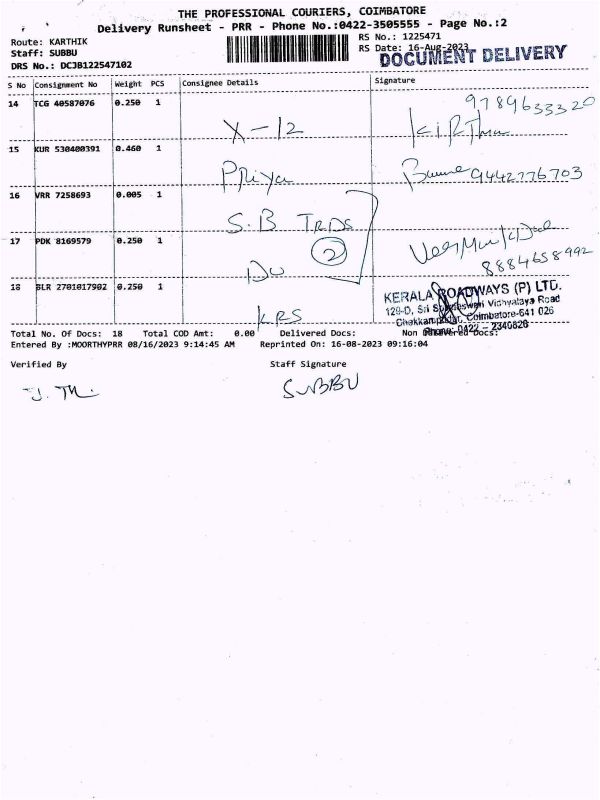 THE PROFESSIONAL COURIERS, COIMBATORE
Delivery Runsheet - PRR - Phone No.:0422-3505555 - Page No.:2
Route: KARTHIK
Staff: SUBBU
DRS No.: DCJB122547102
RS No.: 1225471
RS Date: 16-Aug-2023
DOCUMENT DELIVERY
S No Consignment No Weight PCS Consignee Details Signature
14 TCG 40587076 0.250 1
X-12
9789633320
15 KUR 530400391 0.460 1
Priya
9442776703
16 VRR 7258693 0.005 1
S.B TRDS
2
17 PDK 8169579 0.250 1
Do
8884658992
18 BLR 2701017902 0.250 1
KRS
KERALA ROADWAYS (P) LTD.
129-D, Sri Vidhyalaya Road
Coimbatore-641 026
Phone: 0422 - 2340826
Total No. Of Docs: 18 Total COD Amt: 0.00 Delivered Docs: Non Delivered Docs:
Entered By :MOORTHYPRR 08/16/2023 9:14:45 AM Reprinted On: 16-08-2023 09:16:04
Verified By Staff Signature
SUBBU